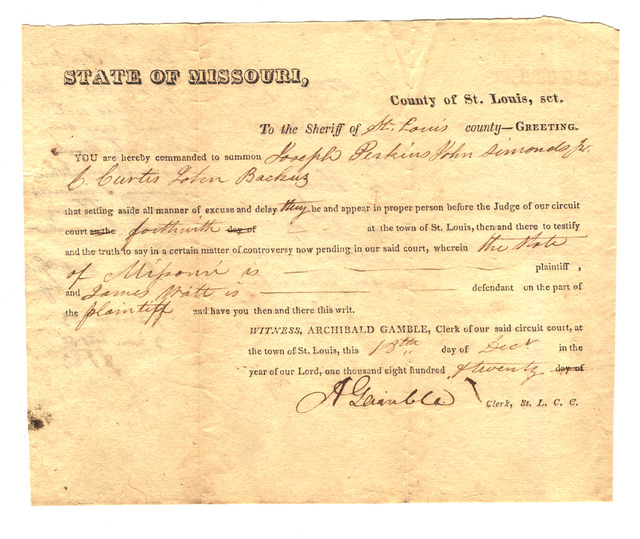 STATE OF MISSOURI,
County of St. Louis, sct.
To the Sheriff of St. Louis county—GREETING.
YOU are hereby commanded to summon Joseph Perkins John Simonds Jr.
C. Curtis John Backus
that setting aside all manner of excuse and delay they be and appear in proper person before the Judge of our circuit
court on the forthwith day of at the town of St. Louis, then and there to testify
and the truth to say in a certain matter of controversy now pending in our said court, wherein the State
of Missouri is — plaintiff,
and James Watt is — defendant on the part of
the plaintiff and have you then and there this writ.
WITNESS, ARCHIBALD GAMBLE, Clerk of our said circuit court, at
the town of St. Louis, this 18th day of Decr in the
year of our Lord, one thousand eight hundred & twenty day of
A Gamble Clerk, St. L. C. C.